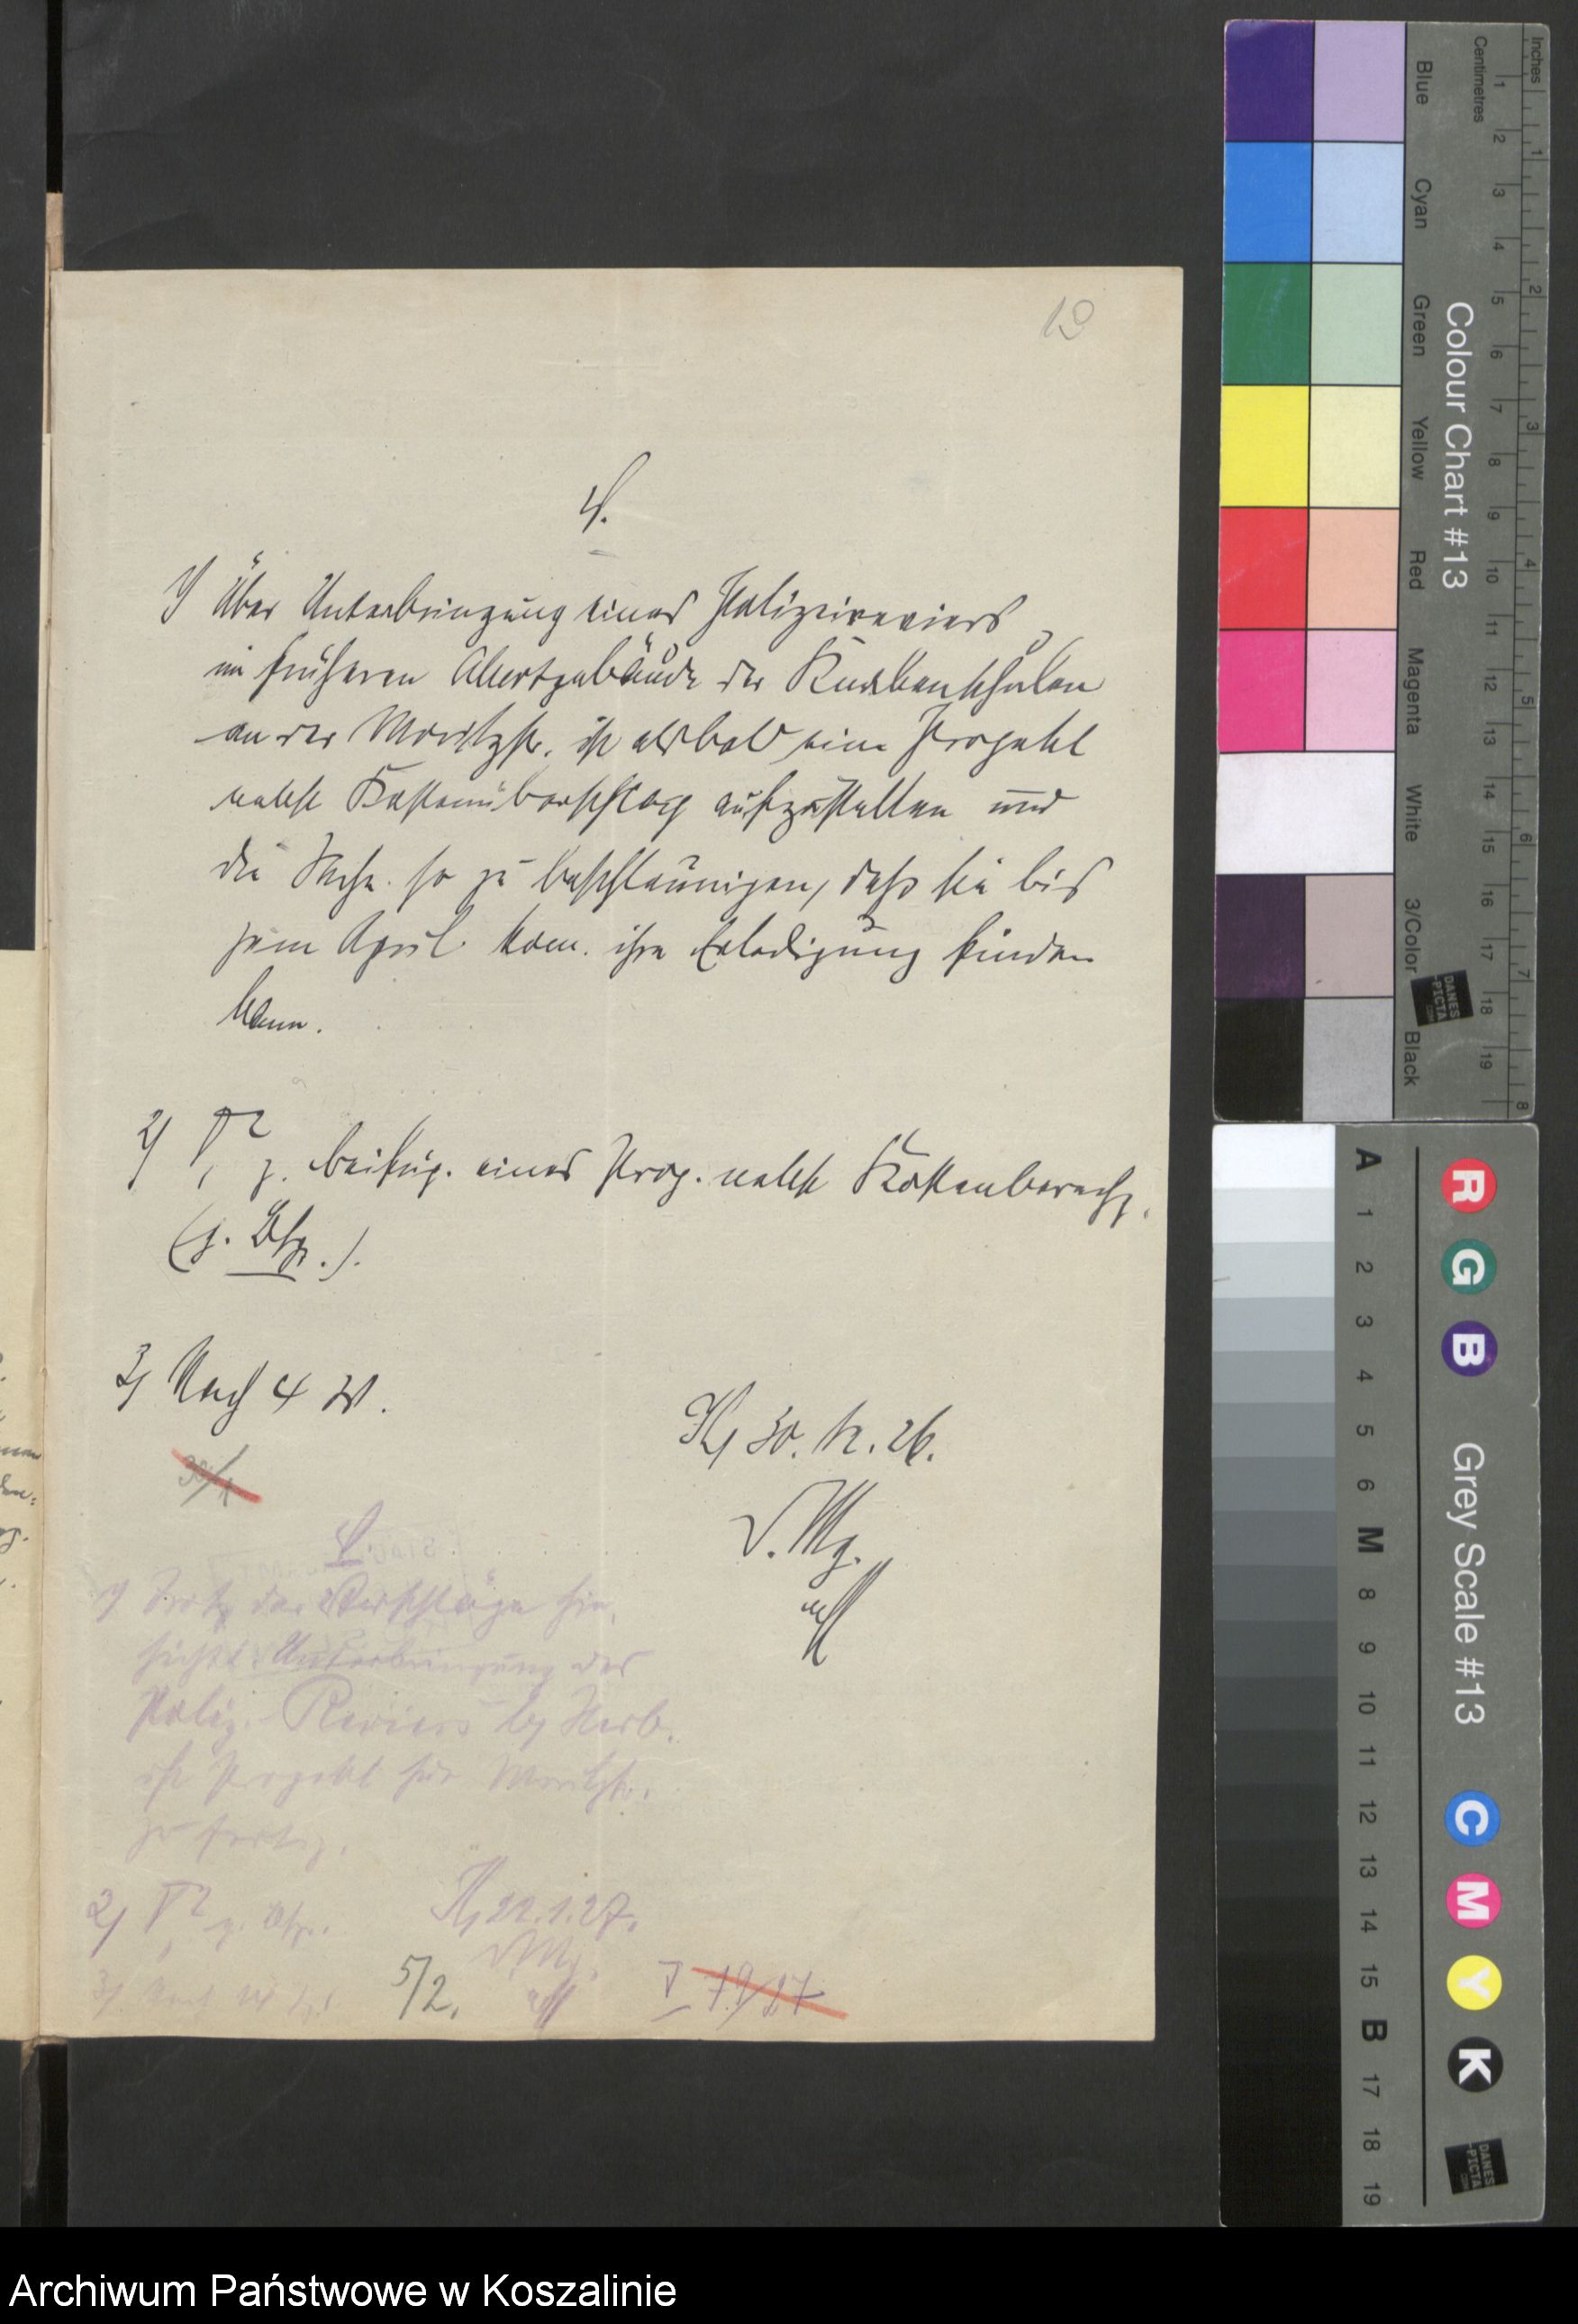 19
V.
1) Über Unterbringung eines Polizeireviers
im früheren Abortgebäude der Knabenschulen
an der Moritzstr. ist alsbald ein Projekt
nebst Kostenüberschlag aufzustellen und
die Sache so zu beschleunigen, daß sie bis
zum April kom. ihre Erledigung finden
kann.
2) T 2 z. Beifüg. eines Proj. nebst Kostenberech.
(s. Bfg.).
3) Nach 4 W.
K, 30. 12. 26.
D. Mg.
30/1
V.
1) Trotz der Vorschläge hin-
sichtl. Unterbringung des
Poliz. Reviers
ist Projekt für Moritzstr.
zu fertig.
2) T 2 z.
K, 22.1.27.
D. Mg.
3) Nach
5/2.
I 79/27
Archiwum Państwowe w Koszalinie
Inches
Centimetres
Colour Chart #13
Blue
Cyan
Green
Yellow
Red
Magenta
White
3/Color
Black
1 2 3 4 5 6 7 8 9 10 11 12 13 14 15 16 17 18 19
1 2 3 4 5 6 7 8
DANES
-PICTA
.COM
Grey Scale #13
A 1 2 3 4 5 6 M 8 9 10 11 12 13 14 15 B 17 18 19
R
G
B
C
M
Y
K
DANES
-PICTA
.COM